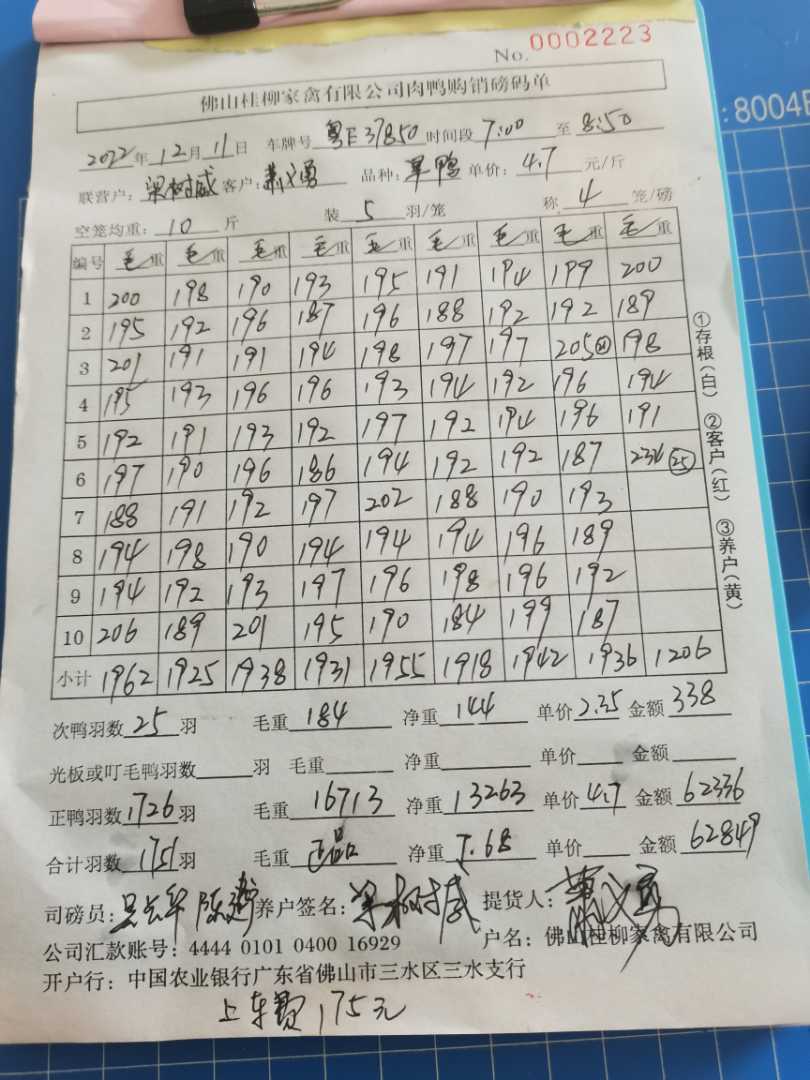 No. 0002223
佛山桂柳家禽有限公司肉鸭购销磅码单
:8004B
2022年12月11日 车牌号 粤E37850 时间段 7:00 至 8:50
联营户: 梁树威 客户: 萧义勇 品种: 草鸭 单价: 4.7 元/斤
空笼均重: 10 斤 装 5 羽/笼 称 4 笼/磅
编号 毛重 毛重 毛重 毛重 毛重 毛重 毛重 毛重 毛重
1 200 198 190 193 195 191 194 199 200
2 195 192 196 187 196 188 192 192 189
3 201 191 191 194 198 197 197 205 198
4 195 193 196 196 193 194 192 196 194
5 192 191 193 192 197 192 194 196 191
6 197 190 196 186 194 192 192 187 234 (25)
7 188 191 192 197 202 188 190 193
8 194 198 190 194 194 194 196 189
9 194 192 193 197 196 198 196 192
10 206 189 201 195 190 184 199 187
小计 1962 1925 1938 1931 1955 1918 1942 1936 1206
次鸭羽数 25 羽 毛重 184 净重 144 单价 2.35 金额 338
光板或叮毛鸭羽数 羽 毛重 净重 单价 金额
正鸭羽数 1726 羽 毛重 16713 净重 13263 单价 4.7 金额 62336
合计羽数 1751 羽 毛重 正品 净重 7.68 单价 金额 62849
司磅员: 养户签名: 梁树威 提货人: 萧义勇
公司汇款账号: 4444 0101 0400 16929 户名: 佛山桂柳家禽有限公司
开户行: 中国农业银行广东省佛山市三水区三水支行
上车费175元
①存根(白) ②客户(红) ③养户(黄)